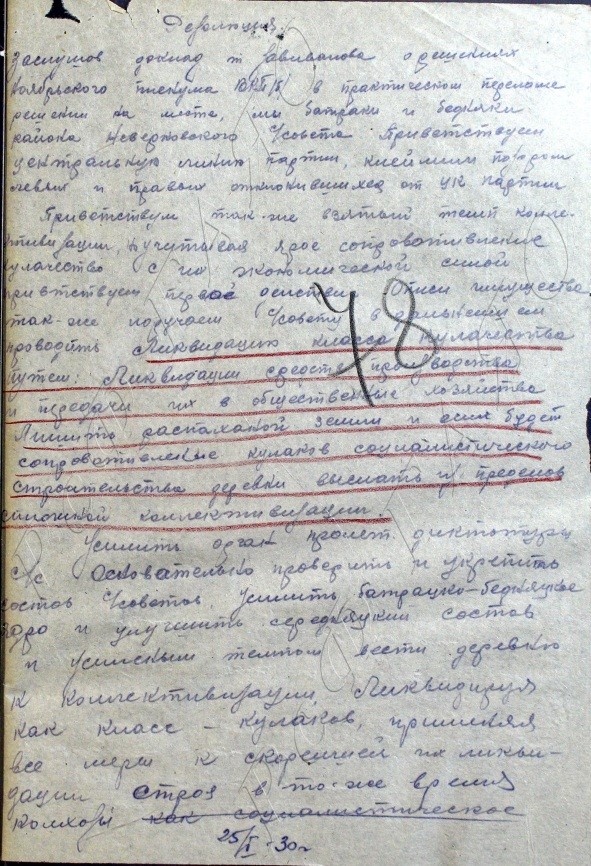 Резолюция.
Заслушов доклад т. о решениях
Ноябрьского пленума ВКП/б/ в практическом
решении на места, мы батраки и бедняки
района Неверковского С/совета Приветствуем
центральную линию партии, клеймим позором
левых и правых отклонившихся от ЦК партии
Приветствуем так-же взятый темп колле-
ктивизации, и учитывая ярое сопротивление
кулачество с их экономической силой
приветствуем первое Описи имущества
так-же поручаем С/совету в дальнейшем
проводить Ликвидацию класса кулачества
путем: Ликвидации средств производства
и передачи их в общественные хозяйства
Лишить распаханой земли и если будет
сопротивление кулаков социалистического
строительства деревни выслать из пределов
сплошной коллективизации.
Усилить орган пролет. диктатуры
с/с Основательно проверить и укрепить
состов С/советов, Усилить батрацко-бедняцкое
ядро и улучшить середняцкий состов
и усиленым темпом вести деревню
к коллективизации, Ликвидируя
как класс - кулаков, применяя
все меры к скорейшей их ликви-
дации строя в то-же время
колхозы как социалистическое
25/I-30г
78